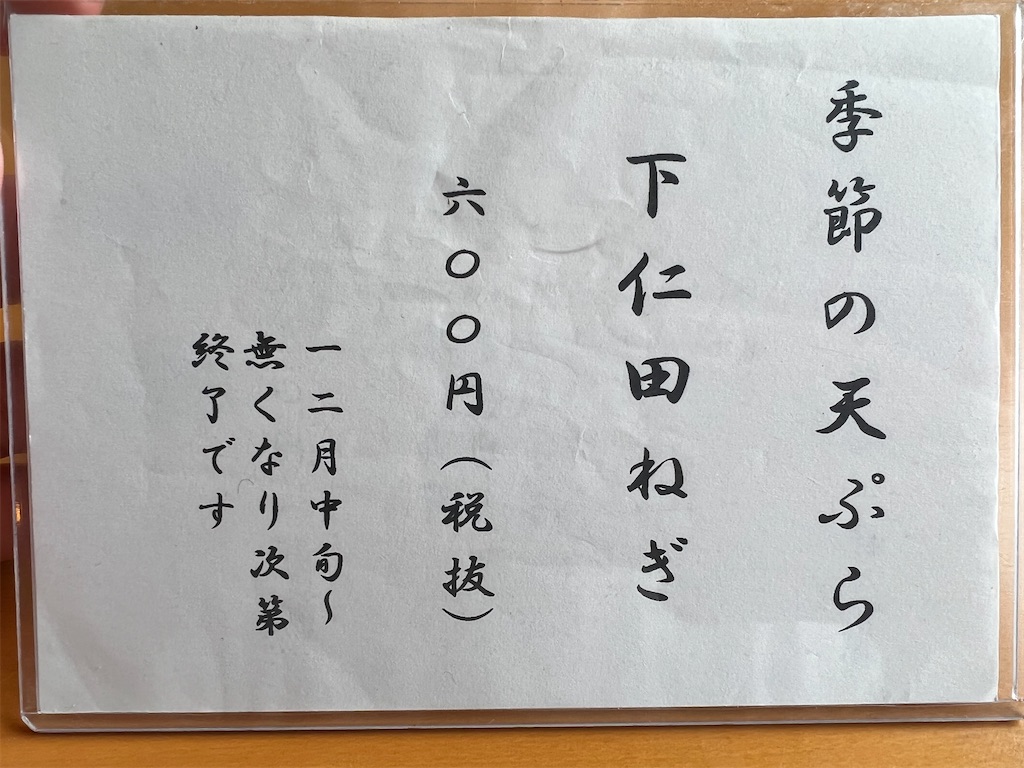 季節の天ぷら
下仁田ねぎ
六〇〇円（税抜）
一二月中旬～
無くなり次第
終了です